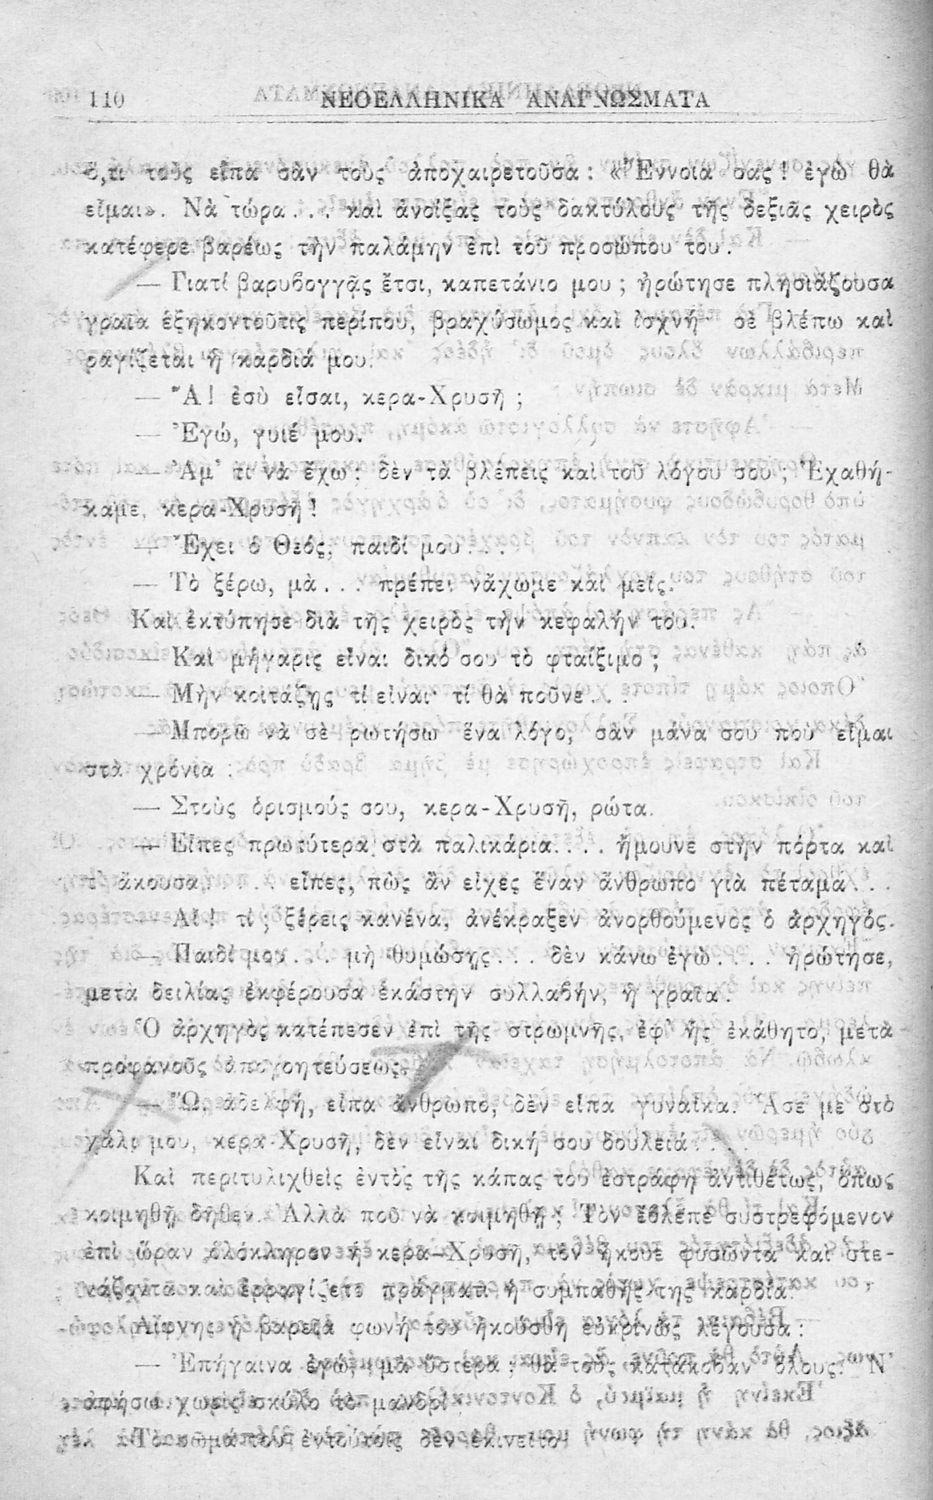 110 ΝΕΟΕΛΛΗΝΙΚΑ ΑΝΑΓΝΩΣΜΑΤΑ
ὅ,τι τοὺς εἶπα σὰν τοὺς ἀποχαιρετοῦσα : «Ἔννοιά σας! ἐγὼ θὰ
εἶμαι». Νὰ τώρα.... καὶ ἀνοίξας τοὺς δακτύλους τῆς δεξιᾶς χειρὸς
κατέφερε βαρέως τὴν παλάμην ἐπὶ τοῦ προσώπου του.
— Γιατί βαρυβογγᾷς ἔτσι, καπετάνιο μου ; ἠρώτησε πλησιάζουσα
γραῖα ἑξηκοντοῦτις περίπου, βραχύσωμος καὶ ἰσχνή· σὲ βλέπω καὶ
ραγίζεται ἡ καρδιά μου.
— Ἄ! ἐσὺ εἶσαι, κερα-Χρυσῆ ;
— Ἐγώ, γυιέ μου.
— Ἀμ' τί νὰ ἔχω ; δὲν τὰ βλέπεις καὶ τοῦ λόγου σου ; Ἐχαθή-
καμε, κερα-Χρυσῆ !
— Ἔχει ὁ Θεός, παιδί μου...
— Τὸ ξέρω, μὰ... πρέπει νἄχωμε καὶ μεῖς.
Καὶ ἐκτύπησε διὰ τῆς χειρὸς τὴν κεφαλήν του.
— Καὶ μήγαρις εἶναι δικό σου τὸ φταίξιμο ;
— Μὴν κοιτάζῃς τί εἶναι· τί θὰ ποῦνε...
— Μπορῶ νὰ σὲ ρωτήσω ἕνα λόγο, σὰν μάνα σου ποὺ εἶμαι
στὰ χρόνια ;
— Στοὺς ὁρισμούς σου, κερα-Χρυσῆ, ρώτα.
— Εἶπες πρωτύτερα στὰ παλικάρια.... ἤμουνε στὴν πόρτα καὶ
τ' ἄκουσα.... εἶπες, πὼς ἂν εἶχες ἕναν ἄνθρωπο γιὰ πέταμα...
— Αἴ! τί ; ξέρεις κανένα, ἀνέκραξεν ἀνορθούμενος ὁ ἀρχηγός.
— Παιδί μου... μὴ θυμώσῃς... δὲν κάνω ἐγώ.... ἠρώτησε,
μετὰ δειλίας ἐκφέρουσα ἑκάστην συλλαβήν, ἡ γραῖα.
Ὁ ἀρχηγὸς κατέπεσεν ἐπὶ τῆς στρωμνῆς, ἐφ' ἧς ἐκάθητο, μετὰ
προφανοῦς ἀπογοητεύσεως.
— Ὤ, ἀδελφή, εἶπα ἄνθρωπο, δὲν εἶπα γυναῖκα. Ἄσε με στὸ
χάλι μου, κερα-Χρυσῆ, δὲν εἶναι δική σου δουλειά...
Καὶ περιτυλιχθεὶς ἐντὸς τῆς κάπας του ἐστράφη ἀντιθέτως, ὅπως
κοιμηθῇ δῆθεν. Ἀλλὰ ποῦ νὰ κοιμηθῇ ; Τὸν ἔβλεπε συστρεφόμενον
ἐπὶ ὥραν ὁλόκληρον ἡ κερα-Χρυσῆ, τὸν ἤκουε φυσῶντα καὶ στε-
νάζοντα καὶ ἐρραγίζετο πράγματι ἡ συμπαθής της καρδία.
Αἴφνης ἡ βαρεῖα φωνή του ἠκούσθη εὐκρινῶς λέγουσα :
— Ἐπήγαινα ἐγώ, μὰ ὕστερα ; θὰ τοὺς κατακόβαν ὅλους. Ν'
ἀφήσω χωρὶς σκύλο τὸ μανδρί ;
Τὸ σῶμά του ἐντούτοις δὲν ἐκινεῖτο